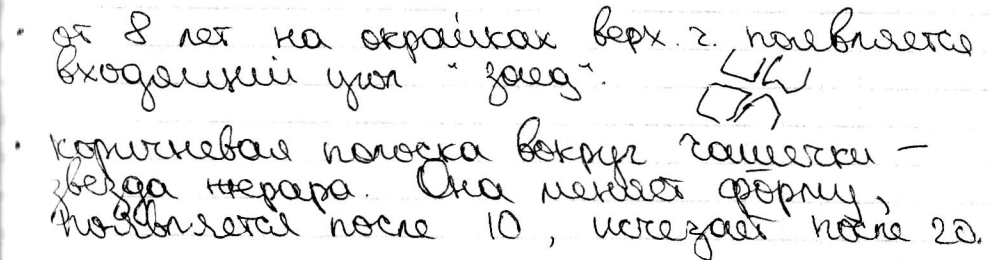 • от 8 лет на окрайках верх. г. появляется
входящий угол "заед".
• коричневая полоска вокруг чашечки –
звезда жерара. Она меняет форму,
появляется после 10, исчезает после 20.